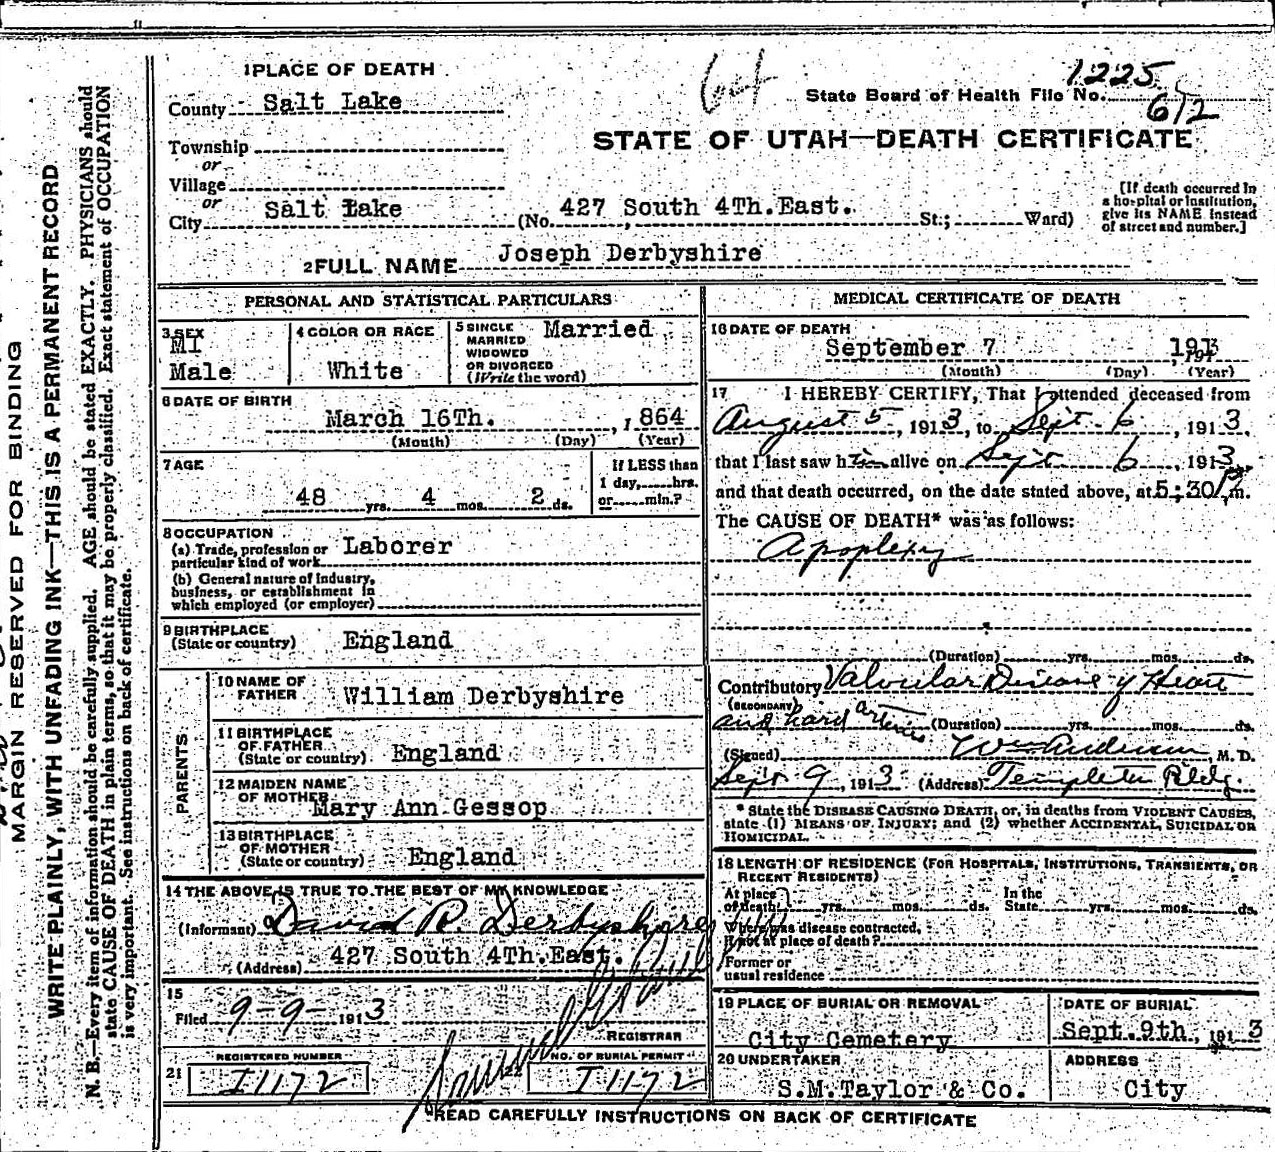 1 PLACE OF DEATH
County Salt Lake
Township
or
Village
or
City Salt Lake
(No. 427 South 4Th.East. St.; Ward)
64
1225
State Board of Health File No.
612
STATE OF UTAH—DEATH CERTIFICATE
[If death occurred in
a hospital or institution,
give its NAME instead
of street and number.]
2 FULL NAME Joseph Derbyshire
PERSONAL AND STATISTICAL PARTICULARS
3 SEX
Ml
Male
4 COLOR OR RACE
White
5 SINGLE
MARRIED
WIDOWED
OR DIVORCED
(Write the word)
Married
6 DATE OF BIRTH
March 16Th. , 1864
(Month) (Day) (Year)
7 AGE
48 yrs. 4 mos. 2 ds.
If LESS than
1 day, hrs.
or min.?
8 OCCUPATION
(a) Trade, profession or
particular kind of work Laborer
(b) General nature of industry,
business, or establishment in
which employed (or employer)
9 BIRTHPLACE
(State or country) England
PARENTS
10 NAME OF
FATHER William Derbyshire
11 BIRTHPLACE
OF FATHER
(State or country) England
12 MAIDEN NAME
OF MOTHER Mary Ann Gessop
13 BIRTHPLACE
OF MOTHER
(State or country) England
14 THE ABOVE IS TRUE TO THE BEST OF MY KNOWLEDGE
(Informant) David R. Derbyshire
(Address) 427 South 4Th.East.
15
Filed 9-9- 1913
REGISTRAR
REGISTERED NUMBER
21 I1172
NO. OF BURIAL PERMIT
I1172
MEDICAL CERTIFICATE OF DEATH
16 DATE OF DEATH
September 7 1913
(Month) (Day) (Year)
17 I HEREBY CERTIFY, That I attended deceased from
August 5, 1913, to Sept. 6, 1913,
that I last saw him alive on Sept 6, 1913,
and that death occurred, on the date stated above, at 5:30 P m.
The CAUSE OF DEATH* was as follows:
Apoplexy
(Duration) yrs. mos. ds.
Contributory Valvular Disease of Heart
(SECONDARY)
and hard arteries (Duration) yrs. mos. ds.
(Signed) Wm Anderson M. D.
Sept 9, 1913 (Address) Templeton Bldg.
* State the DISEASE CAUSING DEATH, or, in deaths from VIOLENT CAUSES,
state (1) MEANS OF INJURY; and (2) whether ACCIDENTAL, SUICIDAL OR
HOMICIDAL.
18 LENGTH OF RESIDENCE (FOR HOSPITALS, INSTITUTIONS, TRANSIENTS, OR
RECENT RESIDENTS)
At place
of death yrs. mos. ds.
In the
State yrs. mos. ds.
Where was disease contracted,
if not at place of death?
Former or
usual residence
19 PLACE OF BURIAL OR REMOVAL
City Cemetery
DATE OF BURIAL
Sept.9th, 1913
20 UNDERTAKER
S.M.Taylor & Co.
ADDRESS
City
READ CAREFULLY INSTRUCTIONS ON BACK OF CERTIFICATE
MARGIN RESERVED FOR BINDING
WRITE PLAINLY, WITH UNFADING INK—THIS IS A PERMANENT RECORD
N. B.—Every item of information should be carefully supplied. AGE should be stated EXACTLY. PHYSICIANS should
state CAUSE OF DEATH in plain terms, so that it may be properly classified. Exact statement of OCCUPATION
is very important. See instructions on back of certificate.